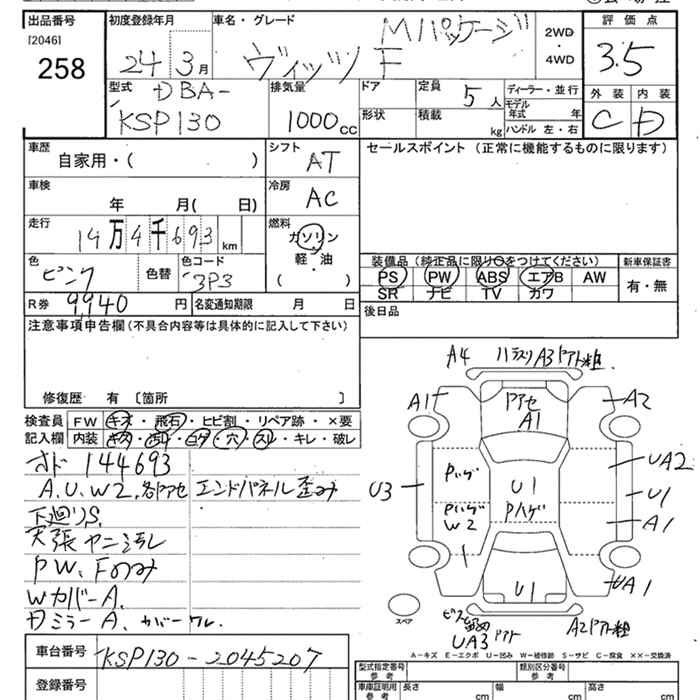 出品番号 初度登録年月 車名・グレード Mパッケージ 2WD・4WD 評価点
[2046]
258 24 3月 ヴィッツ F 3.5
型式 DBA-
KSP130
排気量 1000cc
ドア 定員 5人 ディーラー・並行
形状 積載 kg モデル年式 年
ハンドル 左・右
外装 内装
C D
車歴 自家用・( )
シフト AT
セールスポイント (正常に機能するものに限ります)
車検 年 月( 日)
冷房 AC
走行 14万4千693km
燃料 ガソリン・軽・油 ( )
色 ピンク 色替 色コード 3P3
装備品 (純正品に限り○をつけてください) 新車保証書
PS PW ABS エアB AW 有・無
SR ナビ TV カワ
R券 9,940円 名変通知期限 月 日
後日品
注意事項申告欄 (不具合内容等は具体的に記入して下さい)
修復歴 有 〔箇所 〕
検査員記入欄 FW キズ・飛石・ヒビ割・リペア跡・×要
内装 キズ・汚れ・コゲ・穴・スレ・キレ・破レ
144693
A.U.W2.各所アセ エンドパネル歪み
下廻りS.
天張ヤニ汚レ
PW.Fのみ
WカバーA.
DミラーA. カバーワレ.
車台番号 KSP130-2045207
登録番号
A4
A1 アセ A1 A2
Pハゲ UA2
U3 U1 U1
Pハゲ W2 Pハゲ A1
U1 UA1
スペア
UA3
A-キズ E-エクボ U-凹み W-補修跡 S-サビ C-腐食 XX-交換済
型式指定番号 参考 類別区分番号 参考
車庫証明用 参考 長さ cm 幅 cm 高さ cm